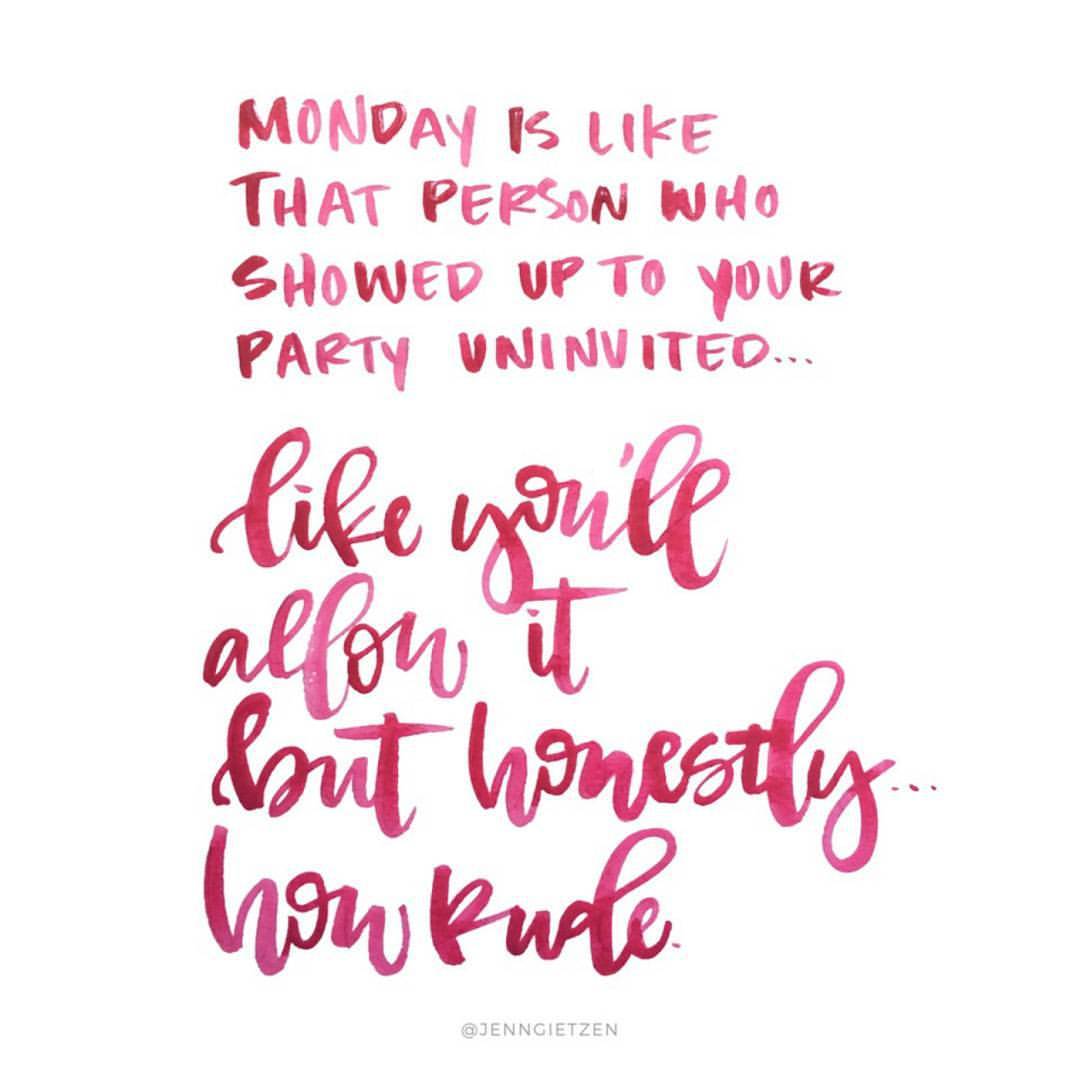 MONDAY IS LIKE
THAT PERSON WHO
SHOWED UP TO YOUR
PARTY UNINVITED...
like you'll
allow it
but honestly...
how Rude.
@JENNGIETZEN